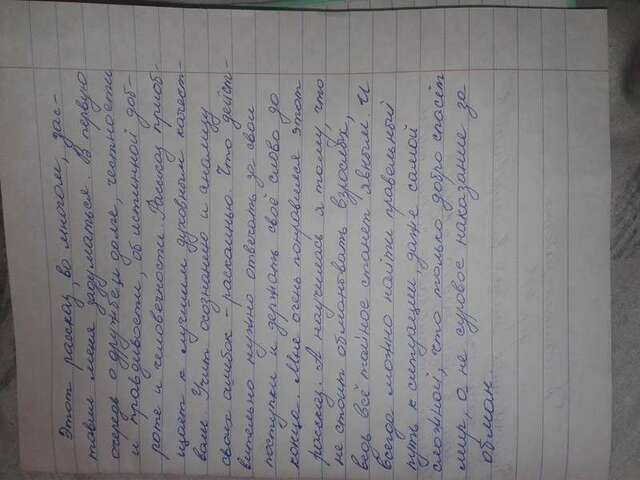 Этот рассказ, во многом, зас-
тавил меня задуматься. В первую
очередь о дружбе и доме, честности
и правдивости, об истинной доб-
роте и человечности. Рассказ приоб-
щает к лучшим духовным качест-
вам. Учит осознанию и смыслу
своих ошибок - раскаянью. Что дейст-
вительно нужно отвечать за свои
поступки и держать своё слово до
конца. Мне очень понравился этот
рассказ. А научилась я тому, что
не стоит обманывать взрослых,
ведь всё тайное станет явным. И
всегда можно найти правильный
путь к ситуации, даже самой
сложной, что только добро спасёт
мир, а не суровое наказание за
обман